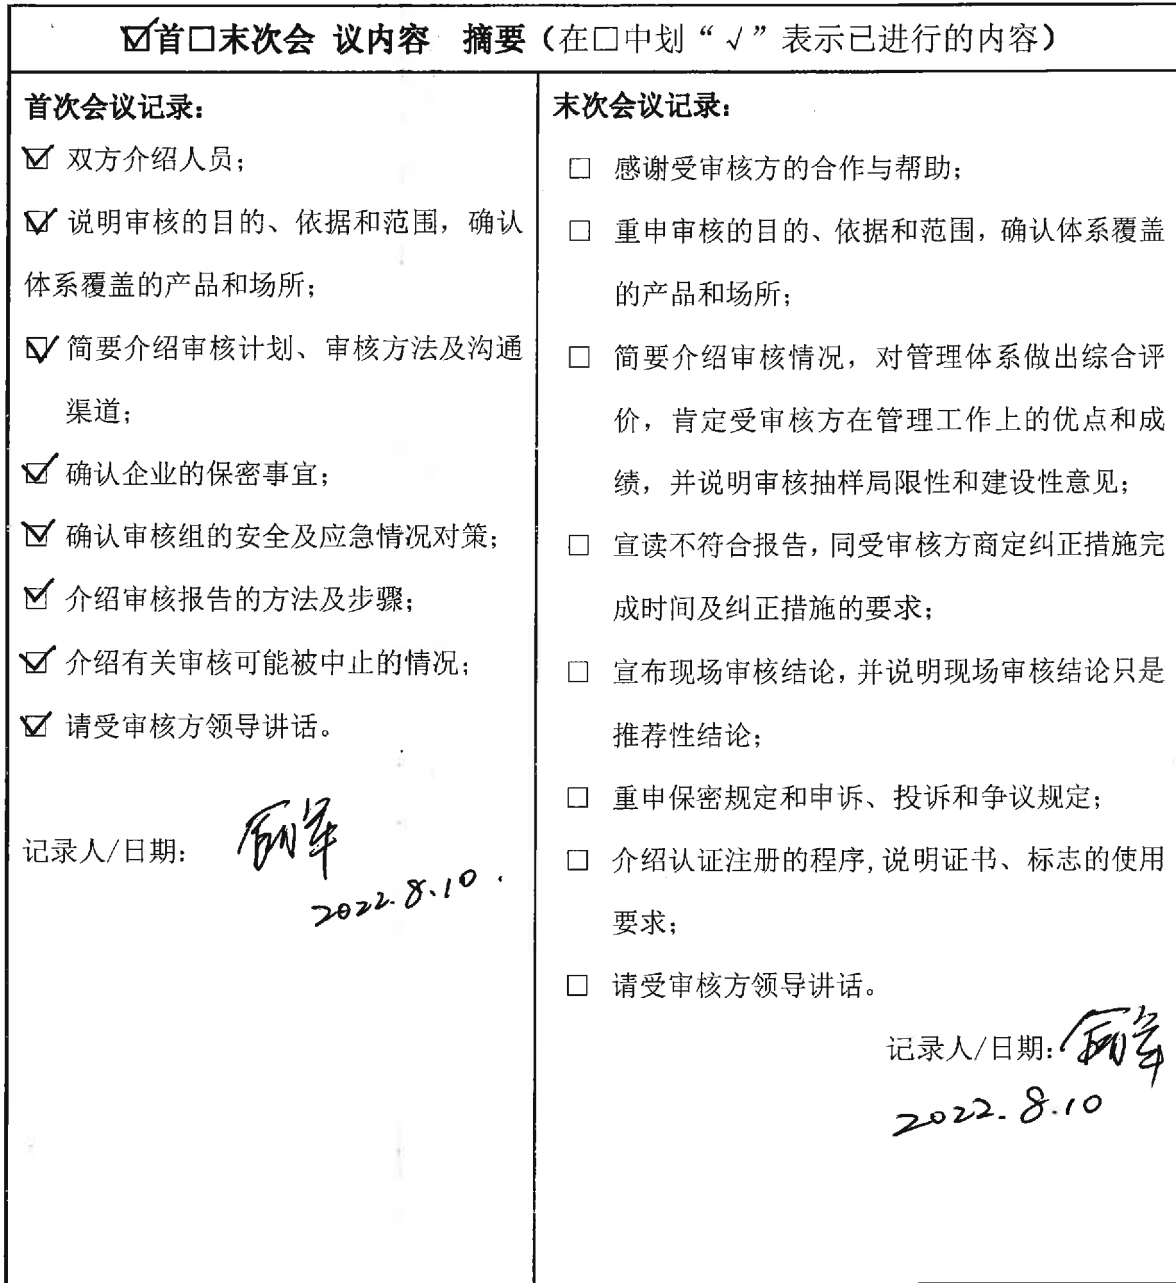 ☑首□末次会 议内容 摘要（在□中划“√”表示已进行的内容）
首次会议记录：
☑ 双方介绍人员；
☑ 说明审核的目的、依据和范围，确认
体系覆盖的产品和场所；
☑ 简要介绍审核计划、审核方法及沟通
渠道；
☑ 确认企业的保密事宜；
☑ 确认审核组的安全及应急情况对策；
☑ 介绍审核报告的方法及步骤；
☑ 介绍有关审核可能被中止的情况；
☑ 请受审核方领导讲话。
记录人/日期：
2022.8.10.
末次会议记录：
□ 感谢受审核方的合作与帮助；
□ 重申审核的目的、依据和范围，确认体系覆盖
的产品和场所；
□ 简要介绍审核情况，对管理体系做出综合评
价，肯定受审核方在管理工作上的优点和成
绩，并说明审核抽样局限性和建设性意见；
□ 宣读不符合报告，同受审核方商定纠正措施完
成时间及纠正措施的要求；
□ 宣布现场审核结论，并说明现场审核结论只是
推荐性结论；
□ 重申保密规定和申诉、投诉和争议规定；
□ 介绍认证注册的程序,说明证书、标志的使用
要求；
□ 请受审核方领导讲话。
记录人/日期：
2022.8.10